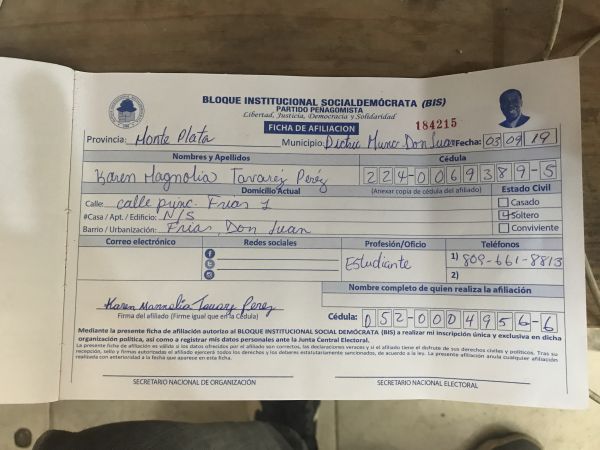 BLOQUE INSTITUCIONAL SOCIALDEMÓCRATA (BIS)
PARTIDO PEÑAGOMISTA
Libertad, Justicia, Democracia y Solidaridad
FICHA DE AFILIACION 184215
Provincia: Monte Plata Municipio: Distric Munc. Don Juan Fecha: 03 09 19
Nombres y Apellidos Cédula
Karen Magnolia Tavarez Peréz 224-0069389-5
Domicilio Actual (Anexar copia de cédula del afiliado) Estado Civil
Calle: calle princ. Frias 1 Casado
#Casa / Apt. / Edificio: N/S Soltero
Barrio / Urbanización: Frias, Don Juan Conviviente
Correo electrónico Redes sociales Profesión/Oficio Teléfonos
Estudiante 1) 809-661-8813
2)
Nombre completo de quien realiza la afiliación
Karen Magnolia Tavarez Perez
Firma del afiliado (Firme igual que en la cédula) Cédula: 052-0004956-6
Mediante la presente ficha de afiliación autorizo al BLOQUE INSTITUCIONAL SOCIAL DEMÓCRATA (BIS) a realizar mi inscripción única y exclusiva en dicha
organización política, así como a registrar mis datos personales ante la Junta Central Electoral.
La presente ficha de afiliación es válida si los datos ofrecidos por el afiliado son correctos, las declaraciones veraces y si el afiliado tiene el disfrute de sus derechos civiles y políticos. Tras su
recepción, sello y firmas autorizadas el afiliado ejercerá todos los derechos y los deberes estatutariamente sancionados, de acuerdo a la ley. La presente afiliación anula cualquier afiliación
realizada con anterioridad a la fecha que aparece en esta ficha.
SECRETARIO NACIONAL DE ORGANIZACIÓN SECRETARIO NACIONAL ELECTORAL